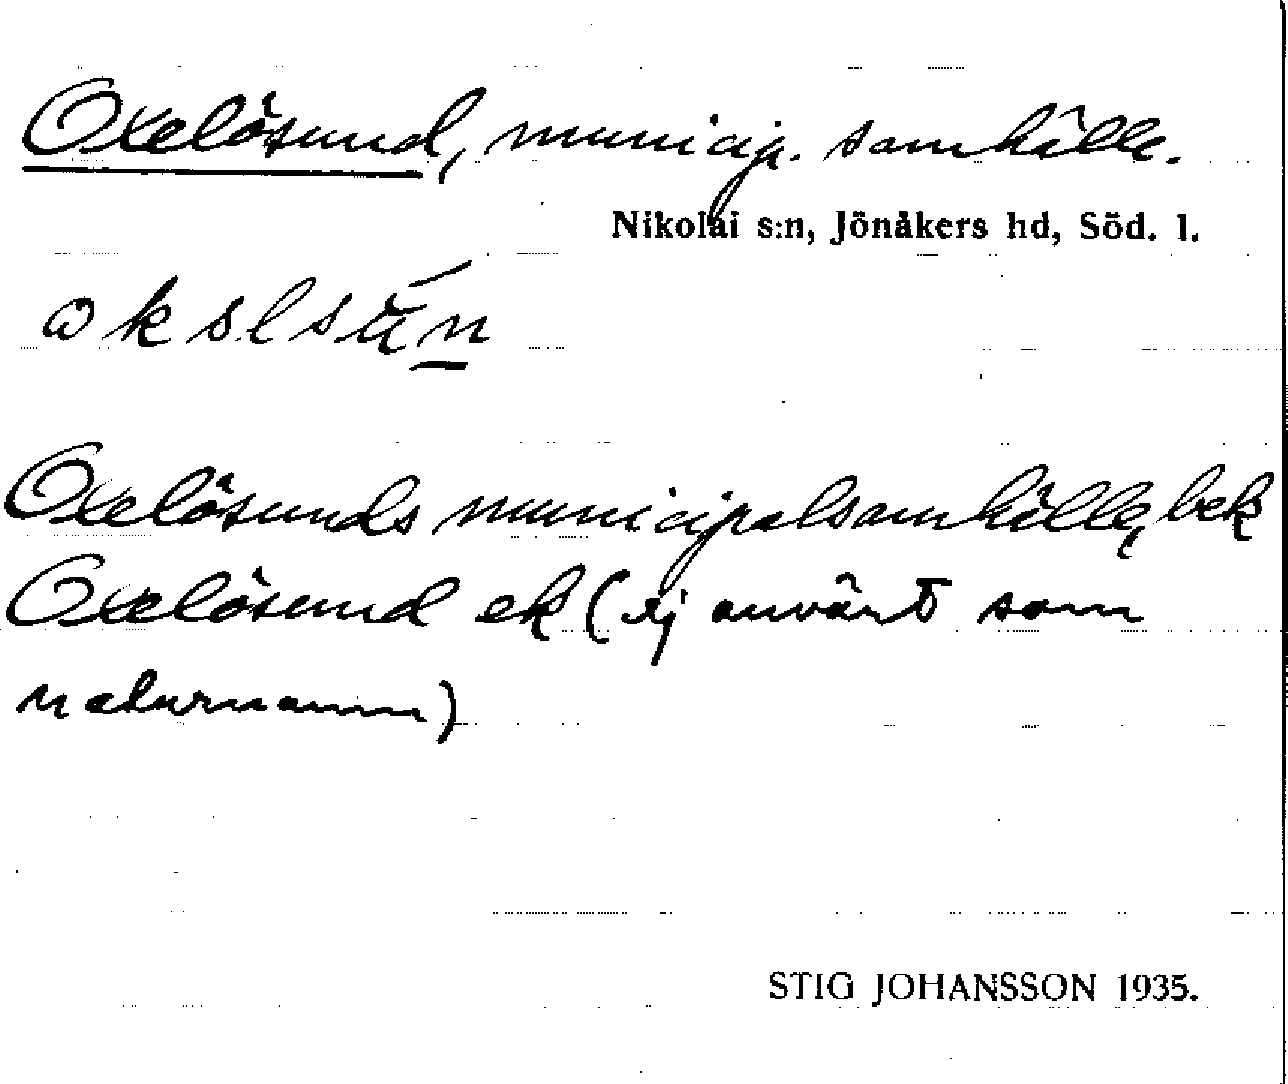 Oxelösund, municip. samhälle.
Nikolai s:n, Jönåkers hd, Söd. l.
Oxelösunds municipalsamhälle, bek
Oxelösund ek (ej använt som
naturnamn)
STIG JOHANSSON 1935.